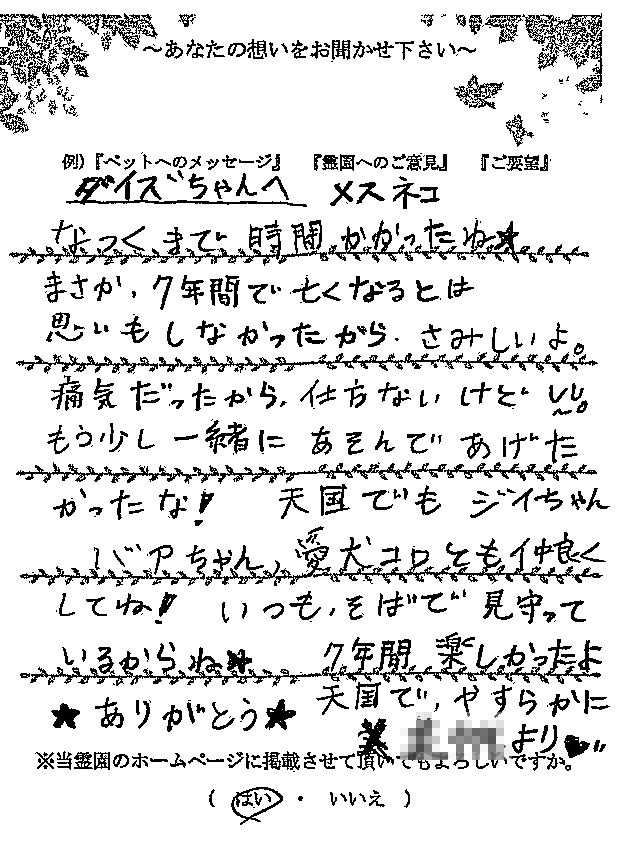 ～あなたの想いをお聞かせ下さい～
例）『ペットへのメッセージ』　『霊園へのご意見』　『ご要望』
ダイズちゃんへ　メスネコ
なつくまで時間かかったね★
まさか、7年間で亡くなるとは
思いもしなかったがら、さみしいよ。
痛気だったから、仕方ないけど
もう少し一緒にあそんであげた
かったな！　天国でもジイちゃん
バアちゃん、愛犬コロとも仲良く
してね！　いつも、そばで見守って
いるからね★　7年間、楽しかったよ
★ありがとう★　天国で、やすらかに
より♥
※当霊園のホームページに掲載させて頂いてもよろしいですか。
（　はい　・　いいえ　）